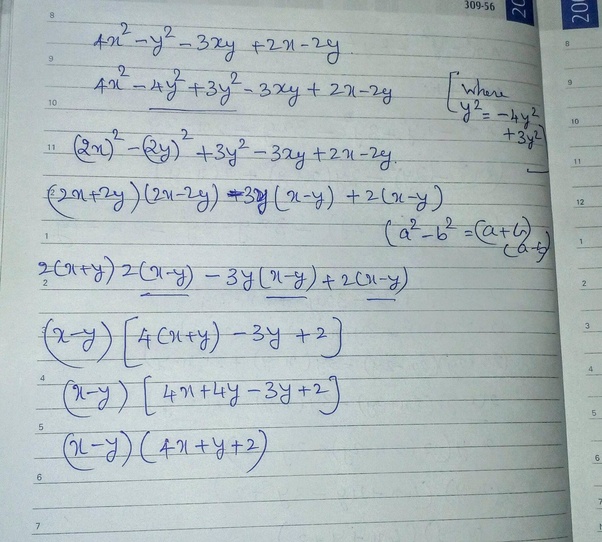 309-56
20
200
8
4x² - y² - 3xy + 2x - 2y
9
4x² - 4y² + 3y² - 3xy + 2x - 2y
[where
y² = -4y²
+3y²]
10
11
(2x)² - (2y)² + 3y² - 3xy + 2x - 2y.
(2x+2y)(2x-2y) - 3y(x-y) + 2(x-y)
(a² - b² = (a+b)
(a-b)
1
2(x+y) 2(x-y) - 3y(x-y) + 2(x-y)
2
(x-y) [4(x+y) - 3y + 2]
4
(x-y) [4x + 4y - 3y + 2]
5
(x-y) (4x + y + 2)
6
7
8
9
10
11
12
1
2
3
4
5
6
7